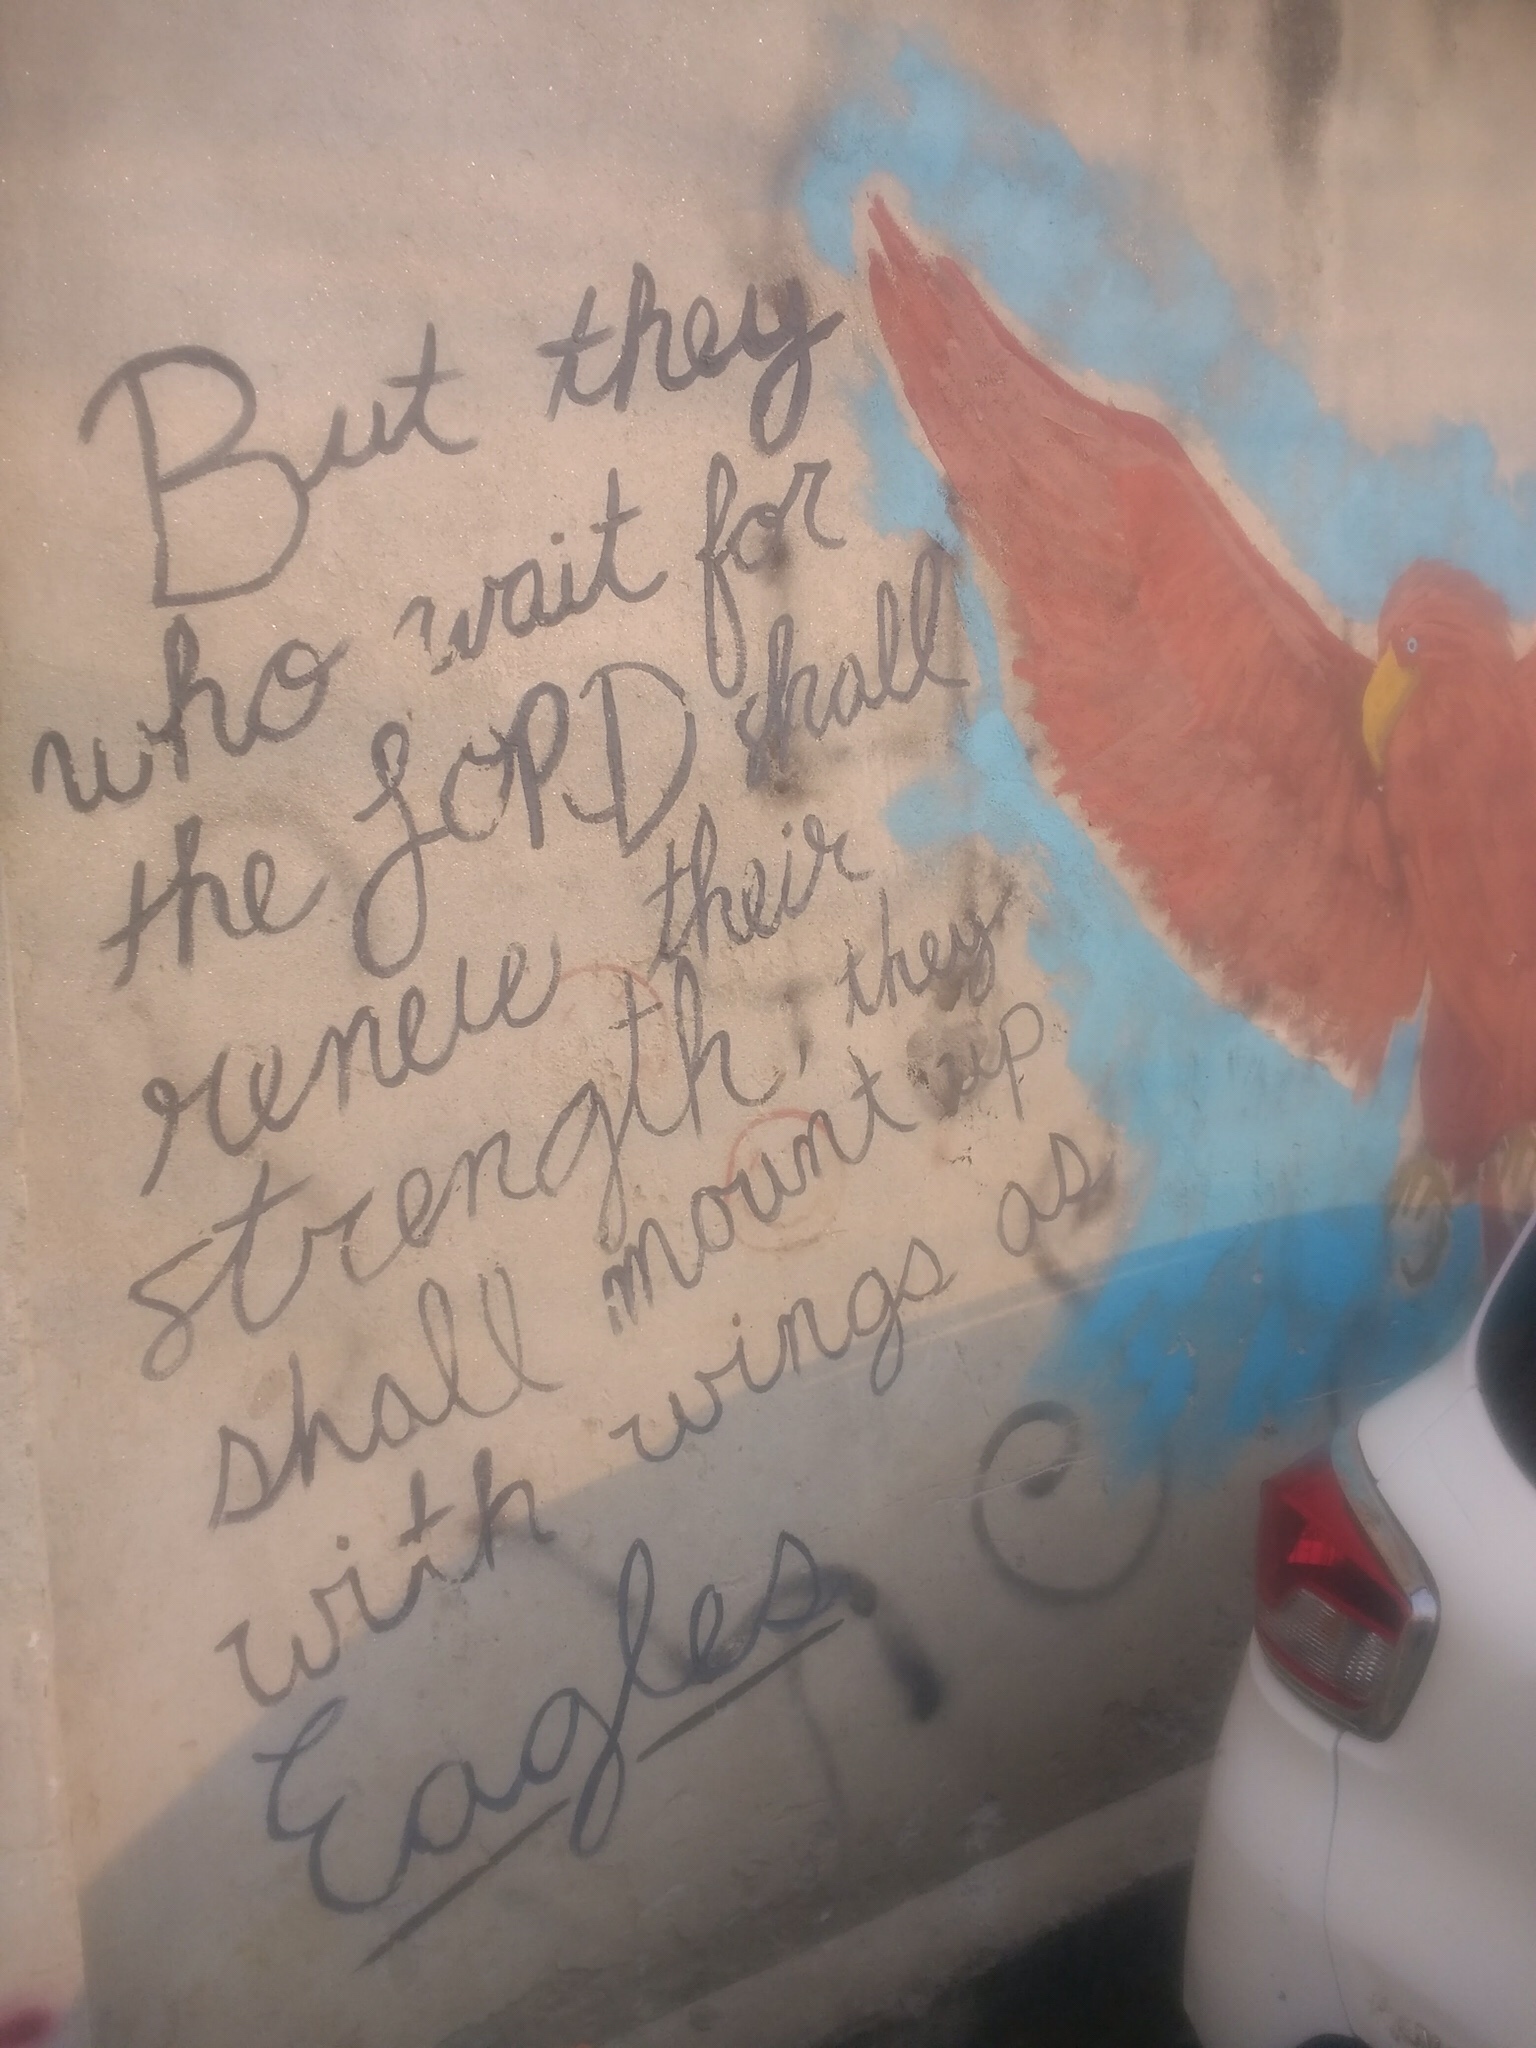 But they
who wait for
the LORD shall
renew their
strength; they
shall mount up
with wings as
Eagles